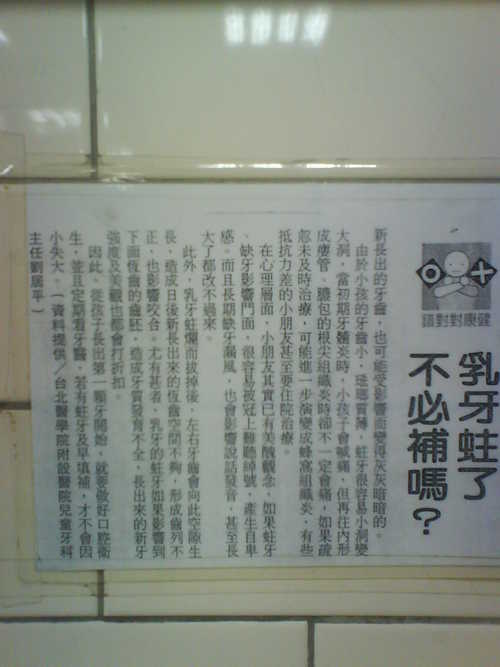 健康對對錯
乳牙蛀了
不必補嗎？
新長出的牙齒，也可能受影響而變得灰灰暗暗的。
由於小孩的牙齒小，琺瑯質薄，蛀牙很容易小洞變
大洞，當初期牙髓炎時，小孩子會喊痛，但再往內形
成瘻管、膿包的根尖組織炎時卻不一定會痛，如果疏
忽未及時治療，可能進一步演變成蜂窩組織炎，有些
抵抗力差的小朋友甚至要住院治療。
在心理層面，小朋友其實已有美醜觀念，如果蛀牙
、缺牙影響門面，很容易被冠上難聽綽號，產生自卑
感。而且長期缺牙漏風，也會影響說話發音，甚至長
大了都改不過來。
此外，乳牙蛀爛而拔掉後，左右牙齒會向此空隙生
長，造成日後新長出來的恆齒空間不夠，形成齒列不
正，也影響咬合。尤有甚者，乳牙的蛀牙如果影響到
下面恆齒的齒胚，造成牙質發育不全，長出來的新牙
強度及美觀也都會打折扣。
因此，從孩子長出第一顆牙開始，就要做好口腔衛
生，並且定期看牙醫，若有蛀牙及早填補，才不會因
小失大。（資料提供／台北醫學院附設醫院兒童牙科
主任劉居平）